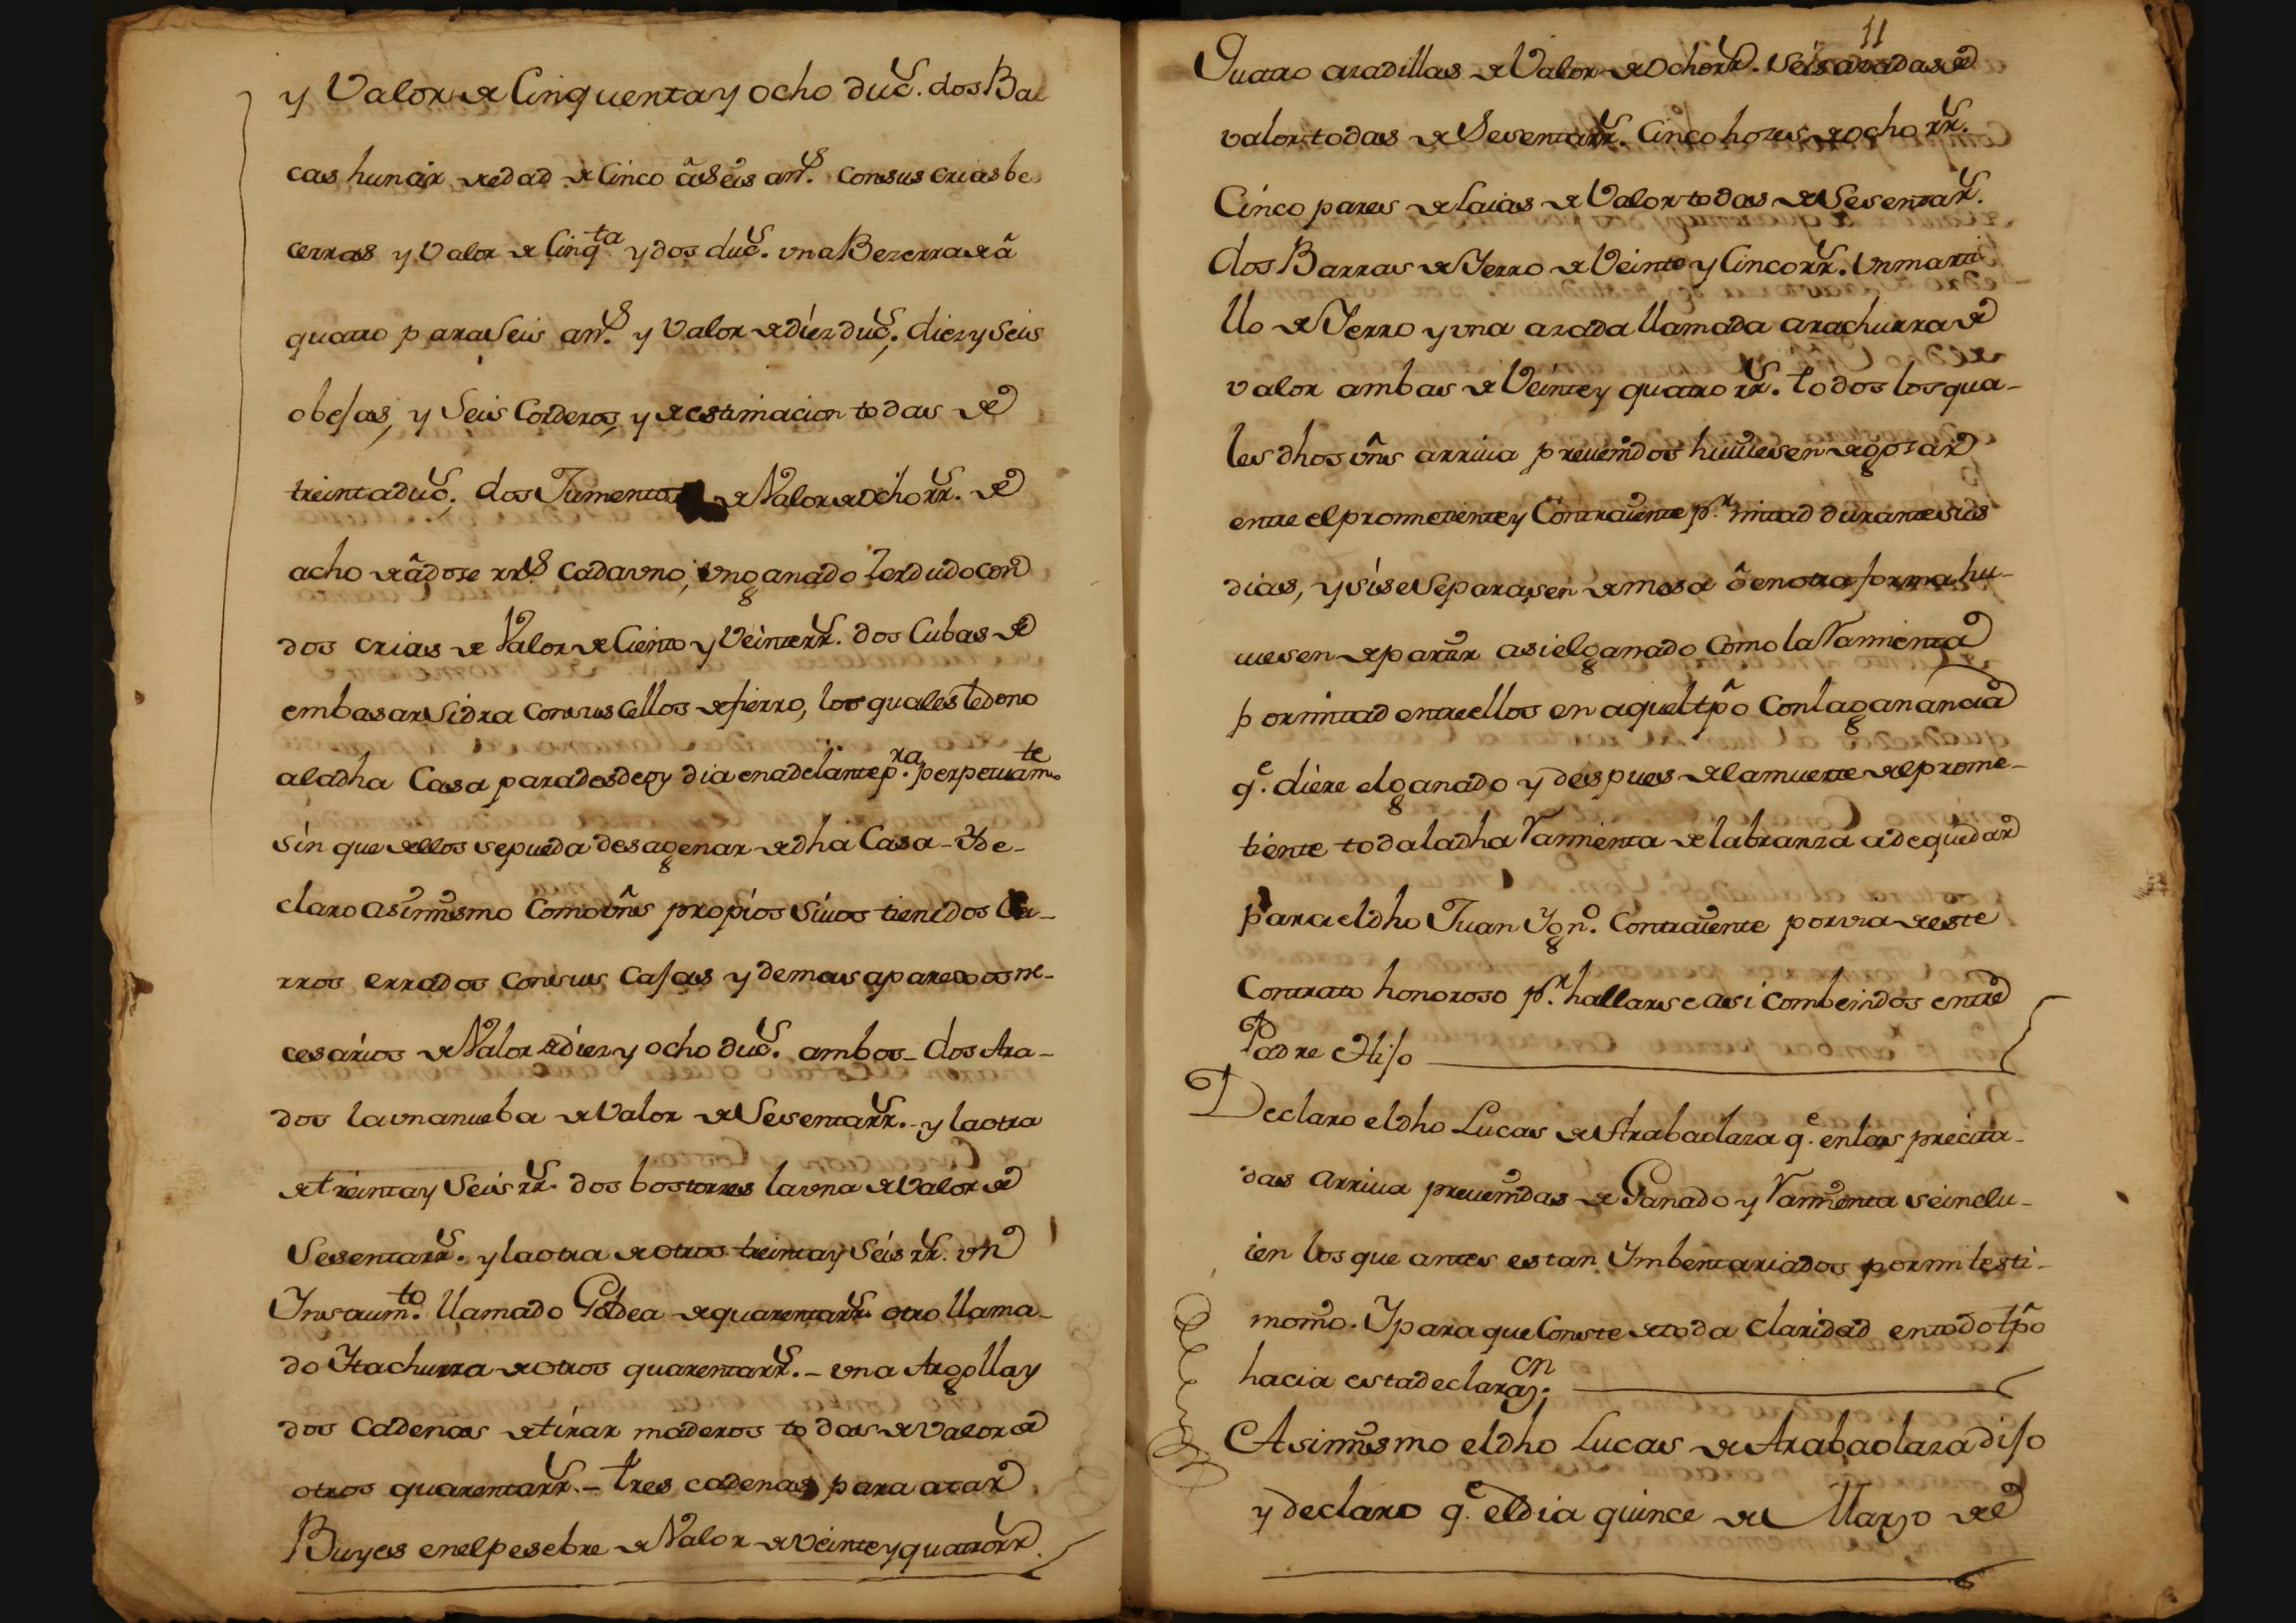 y Valor de Cinquenta y ocho duc.s dos Ba
cas hunai de edad de Cinco â Seis añ.s con sus crias be
cerras y Valor de Cinq.ta y dos duc.s una Bezerra de â
quatro para Seis añ.s y Valor de diez duc.s, diez y Seis
obejas, y Seis Corderos, y de estimacion todas de
treinta duc.s, dos Jumentos de Valor de ocho rr.s de
acho de â doze rr.s cada uno, un ganado Zerdudo con
dos crias de Valor de Ciento y Veinte rr.s dos Cubas de
embasar Sidra con sus Cellos de fierro, los quales le dono
a la dha Casa para desde oy dia en adelante p.ra perpetuam.te
sin que de ellos se pueda desagenar de dha Casa - Y de-
claro asimismo Como vns propios Suios tiene dos Ca-
rros errados con sus Cajas y demas aparexos ne-
cesarios de Valor de diez y ocho duc.s ambos - dos Ara-
dos la una nueba de Valor de Sesenta rr.s - y la otra
de treinta y Seis rr.s dos bostortes la una de Valor de
Sesenta rr.s y la otra de otros treinta y Seis rr.s un
Instrum.to llamado Goldea de quarenta rr.s otro llama-
do Itachurra de otros quarenta rr.s - una Argolla y
dos Cadenas de tirar maderos todas de Valor de
otros quarenta rr.s - tres cadenas para atar
Buyes en el pesebre de Valor de Veinte y quatro rr.s
11
Quatro azadillas de Valor de ocho rr.s Seis azadas de
valor todas de Sesenta rr.s Cinco hozes de ocho rr.s
Cinco pares de laias de Valor todas de Sesenta r.s
dos Barras de Yerro de Veinte y Cinco rr.s Un marti
llo de Yerro y una azada llamada arachurra de
valor ambas de Veinte y quatro rr.s todos los qua-
les dhos vns arriua preuenidos huuiesen de gozar
entre el prometiente y Contraiente p.r mitad durante sus
dias, y si se Separasen de mesa ô en otra forma hu-
uiesen de partir asi el ganado Como la Xarrienta
por mitad entre ellos en aquel tpo Con la ganancia
q.e diere el ganado y despues de la muerte del prome-
tiente toda la dha Xarrienta de labranza a de quedar
para el dho Juan Ygn.o Contraiente por via de este
Contrato honoroso p.r hallarse asi combenidos entre
Padre e Hijo
Declaro el dho Lucas de Arabaolaza q.e en las precita-
das arriua preuenidas de Ganado y Xarrienta se inclu-
ien los que antes estan Ymbentariados por mi testi-
monio. Y para que Conste de toda claridad en todo tpo
hacia esta declaraz.on
Asimismo el dho Lucas de Arabaolaza dijo
y declaro q.e el dia quince de Marzo de